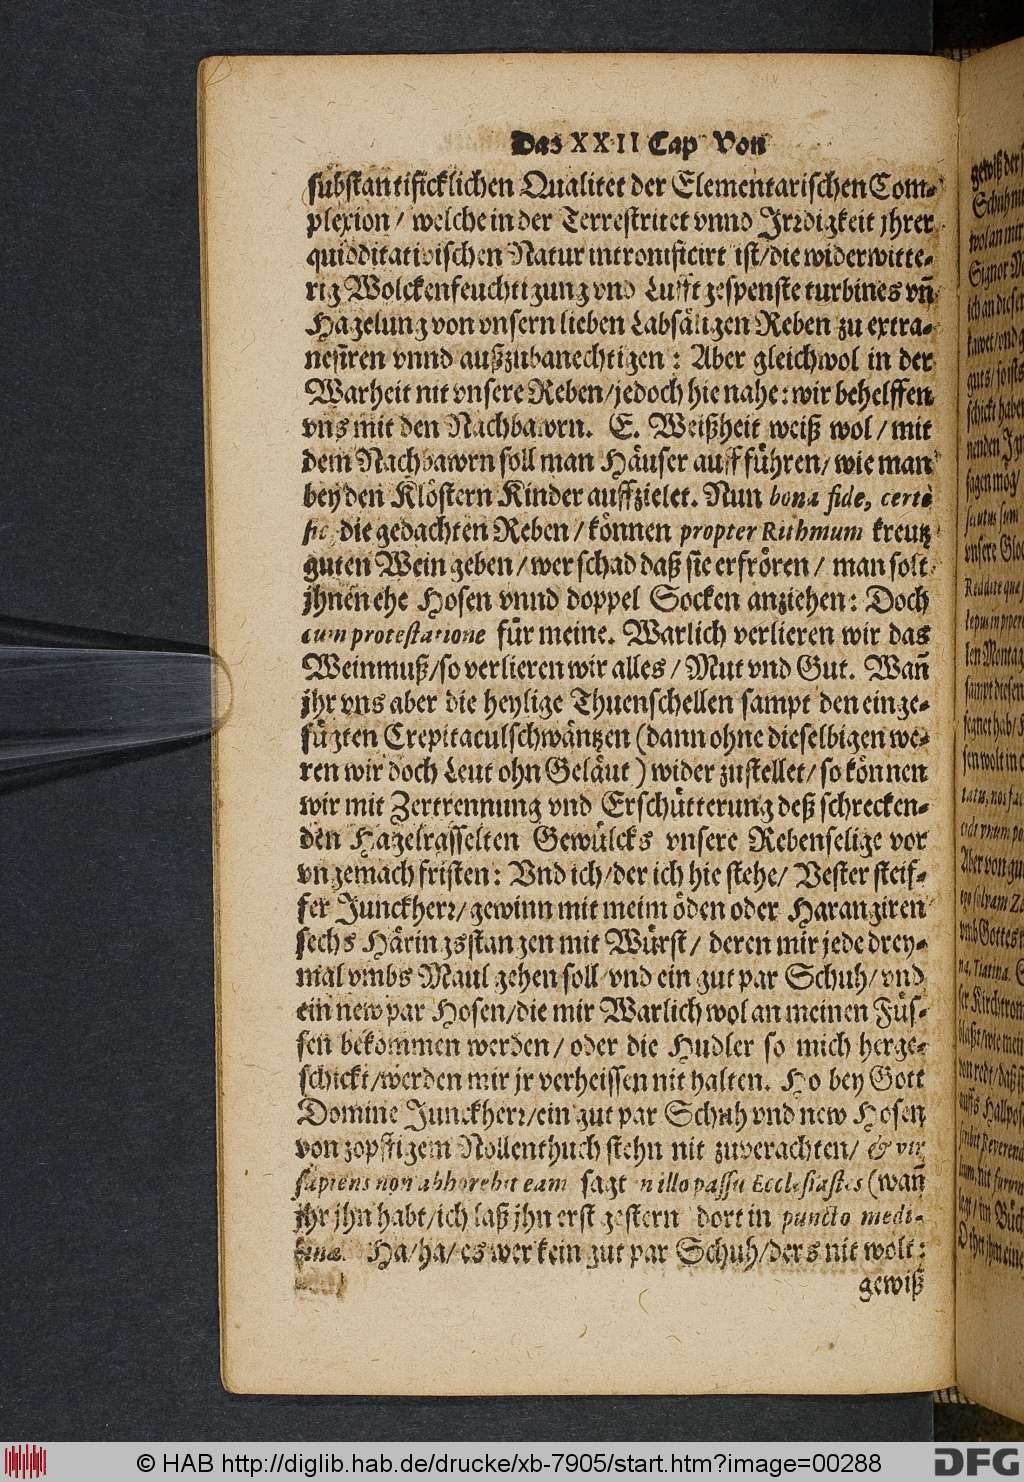 Das XXII Cap Von
substantificklichen Qualitet der Elementarischen Com-
plexion / welche in der Terrestritet vnnd Irrdigkeit jhrer
quidditativischen Natur intronificirt ist/die widerwitte-
rig Wolckenfeuchtigung vnd Lufftgespenste turbines vñ
Hagelung von vnsern lieben Labsäligen Reben zu extra-
nesiren vnnd außzubanechtigen : Aber gleichwol in der
Warheit nit vnsere Reben/jedoch hie nahe: wir behelffen
vns mit den Nachbawrn. E. Weißheit weiß wol / mit
dem Nachbawrn soll man Häuser auffführen/ wie man
bey den Klöstern Kinder auffzielet. Nun bona fide, certè
sic, die gedachten Reben / können propter Rithmum kreutz
guten Wein geben / wer schad daß sie erfrören / man solt
jhnen ehe Hosen vnnd doppel Socken anziehen: Doch
cum protestatione für meine. Warlich verlieren wir das
Weinmuß/so verlieren wir alles / Mut vnd Gut. Wañ
jhr vns aber die heylige Thuenschellen sampt den einge-
fügten Crepitaculschwäntzen (dann ohne dieselbigen we-
ren wir doch Leut ohn Geläut ) wider zustellet / so können
wir mit Zertrennung vnd Erschütterung deß schrecken-
den Hagelrasselten Gewülcks vnsere Rebenselige vor
vngemach fristen: Vnd ich/der ich hie stehe/ Vester steif-
fer Junckherr/gewinn mit meim öden oder Harangiren
sechs Häringsstangen mit Würst / deren mir jede drey-
mal vmbs Maul gehen soll/vnd ein gut par Schuh/vnd
ein new par Hosen/die mir Warlich wol an meinen Füs-
sen bekommen werden / oder die Hudler so mich herge-
schickt/werden mir jr verheissen nit halten. Ho bey Gott
Domine Junckherr/ein gut par Schuh vnd new Hosen
von zopffigem Nollenthuch stehn nit zuverachten/ & vir
sapiens non abhorrebit eam sagt in illo passu Ecclesiastes (wañ
jhr jhn habt/ich laß jhn erst gestern dort in puncto medi-
cinæ. Ha/ha/ es wer kein gut par Schuh/ders nit wolt:
gewiß
© HAB http://diglib.hab.de/drucke/xb-7905/start.htm?image=00288
DFG